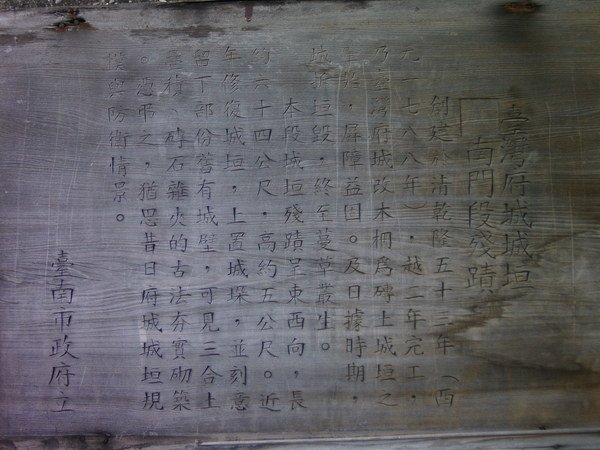 臺灣府城城垣
南門段殘蹟
創建於清乾隆五十三年(西
元一七八八年),越二年完工,
乃臺灣府城改木柵為磚土城垣之
,屏障益固。及日據時期,
城垣毀,終至蔓草叢生。
本段城垣殘蹟呈東西向,長
約六十四公尺,高約五公尺。近
年修復城垣,上置城垛,並刻意
留下部份舊有城壁,可見三合土
疊積、磚石雜夾的古法夯實砌築
。憑弔之,猶思昔日府城城垣規
模與防衛情景。
臺南市政府立